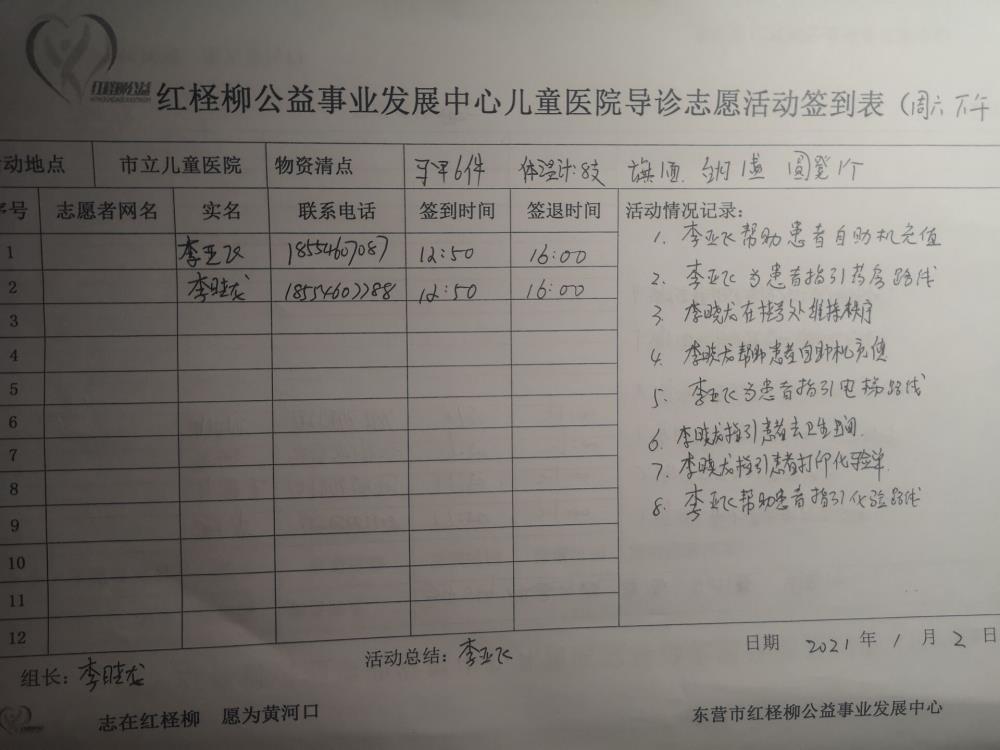 红柽柳公益
红柽柳公益事业发展中心儿童医院导诊志愿活动签到表（周六下午
动地点 市立儿童医院 物资清点 马甲6件 体温计:8支 旗1面 1盒 圆凳1个
序号 志愿者网名 实名 联系电话 签到时间 签退时间 活动情况记录：
1 李亚飞 18554607087 12:50 16:00
2 李晓龙 18554602288 12:50 16:00
3
4
5
6
7
8
9
10
11
12
1. 李亚飞帮助患者自助机充值
2. 李亚飞为患者指引药房路线
3. 李晓龙在挂号处维持秩序
4. 李晓龙帮助患者自助机充值
5. 李亚飞为患者指引电梯路线
6. 李晓龙指引患者去卫生间.
7. 李晓龙指引患者打印化验单
8. 李亚飞帮助患者指引化验路线
日期 2021年1月2日
组长：李晓龙 活动总结：李亚飞
志在红柽柳 愿为黄河口 东营市红柽柳公益事业发展中心